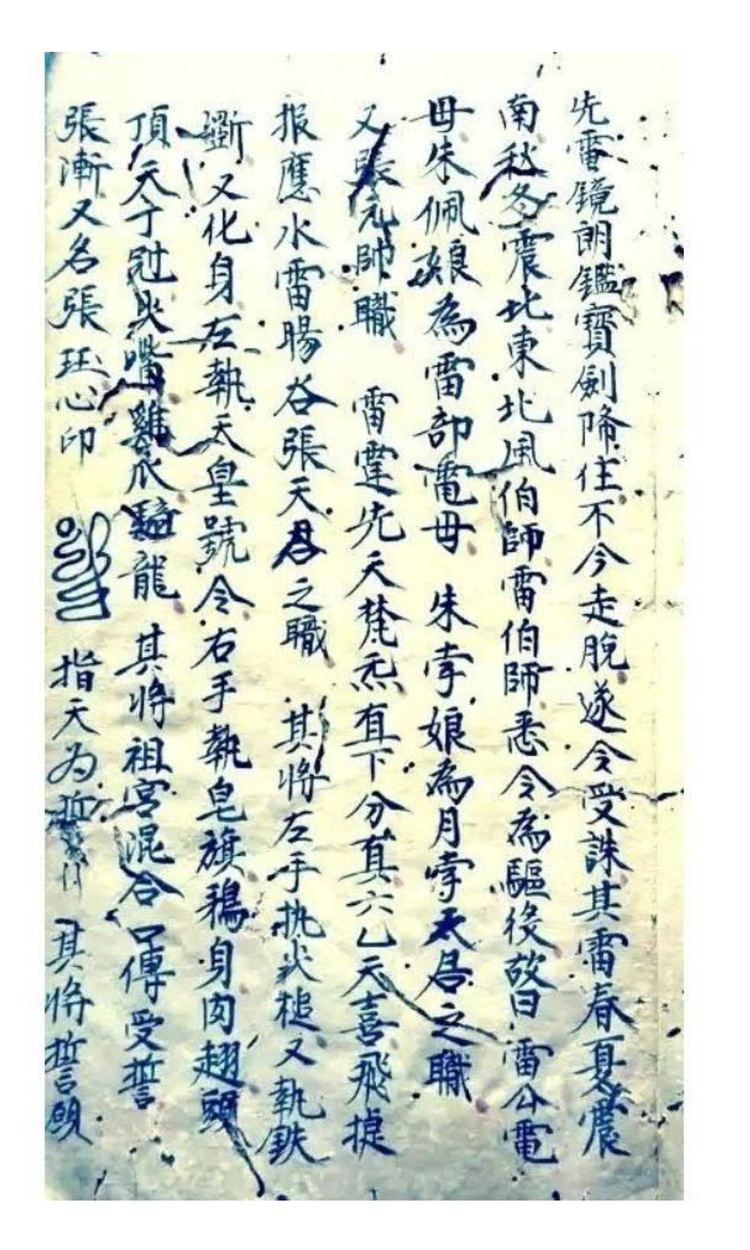 先雷鏡朗鑑寶劍降住不令走脫遂令受誅其雷春夏震
南秋冬震北東北風伯師雷伯師悉令為驅後故曰雷公電
母朱佩娘為雷部電母 朱孛娘為月孛天君之職
又張元帥職 雷霆先天梵炁直下分真六乙天喜飛捷
报應水雷腸谷張天君之職 其將左手执火槌又執鉄
斵又化身左執天皇號令右手執皂旗鴉身肉翅頭
頂天丁冠尖嘴雞爪騎龍 其將祖宮混合口傳受誓
張漸又名張珏心印 指天为誓 其將誓願